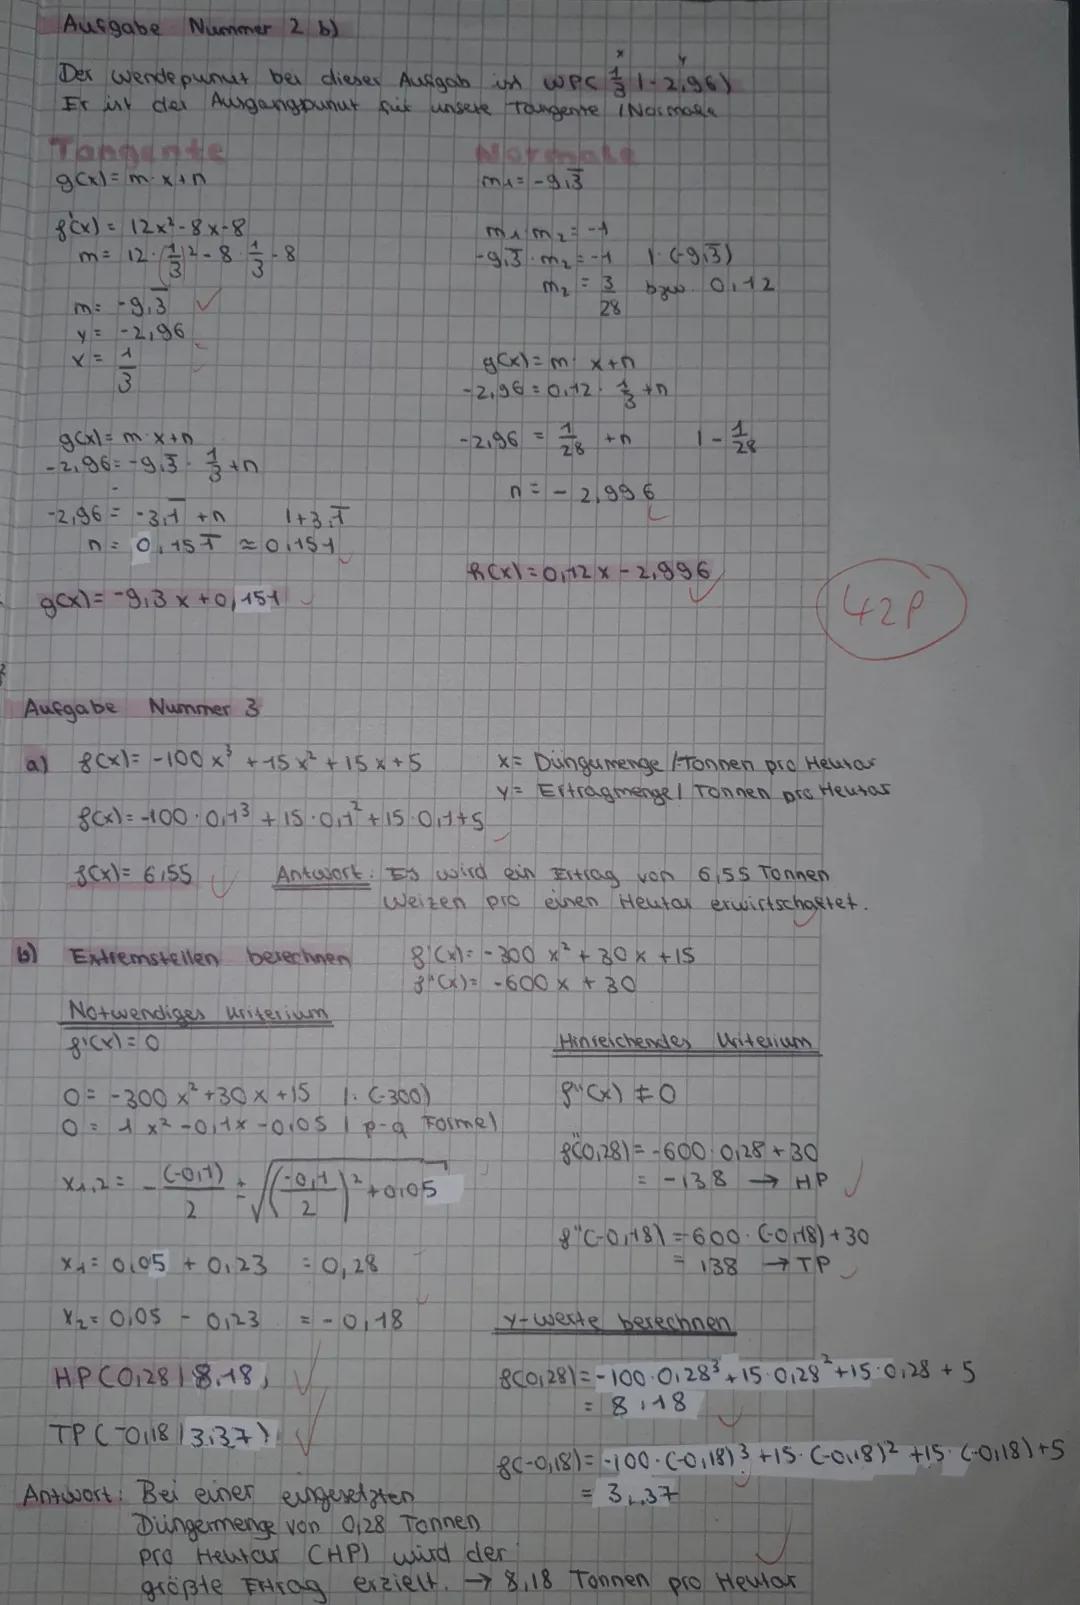 Aufgabe Nummer 2 b)
x y
Der Wendepunkt bei dieser Aufgab ist WP( 1/3 | -2,96)
Er ist der Ausgangpunkt für unsere Tangente / Normale
Tangente
g(x) = m · x + n
f'(x) = 12x² - 8x - 8
m = 12 · (1/3)² - 8 · 1/3 - 8
m = -9,3̅ ✓
y = -2,96
x = 1/3
g(x) = m · x + n
-2,96 = -9,3̅ · 1/3 + n
-2,96 = -3,1̅ + n | + 3,1̅
n = 0,151̅ ≈ 0,151
g(x) = -9,3x + 0,151
Normale
m₁ = -9,3̅
m₁ · m₂ = -1
-9,3̅ · m₂ = -1 | : (-9,3̅)
m₂ = 3/28 bzw. 0,12
g(x) = m · x + n
-2,96 = 0,12 · 1/3 + n
-2,96 = 1/28 + n | - 1/28
n = -2,996
h(x) = 0,12x - 2,996
42P
Aufgabe Nummer 3
a) f(x) = -100x³ + 15x² + 15x + 5
x = Düngumenge / Tonnen pro Hektar
y = Ertragmenge / Tonnen pro Hektar
f(x) = -100 · 0,1³ + 15 · 0,1² + 15 · 0,1 + 5
f(x) = 6,55 ✓ Antwort: Es wird ein Ertrag von 6,55 Tonnen
Weizen pro einen Hektar erwirtschaftet.
b) Extremstellen berechnen
f'(x) = -300x² + 30x + 15
f''(x) = -600x + 30
Notwendiges Kriterium
f'(x) = 0
0 = -300x² + 30x + 15 | : (-300)
0 = 1x² - 0,1x - 0,05 | p-q Formel
x₁,₂ = - (-0,1)/2 ± √((-0,1/2)² + 0,05)
x₁ = 0,05 + 0,23 = 0,28
x₂ = 0,05 - 0,23 = -0,18
HP(0,28 | 8,18) ✓
TP(-0,18 | 3,37) ✓
Hinreichendes Kriterium
f''(x) ≠ 0
f''(0,28) = -600 · 0,28 + 30
= -138 → HP ✓
f''(-0,18) = -600 · (-0,18) + 30
= 138 → TP
y-Werte berechnen
f(0,28) = -100 · 0,28³ + 15 · 0,28² + 15 · 0,28 + 5
= 8,18
f(-0,18) = -100 · (-0,18)³ + 15 · (-0,18)² + 15 · (-0,18) + 5
= 3,37
Antwort: Bei einer eingesetzten
Düngermenge von 0,28 Tonnen
pro Hektar (HP) wird der
größte Ertrag erzielt. → 8,18 Tonnen pro Hektar